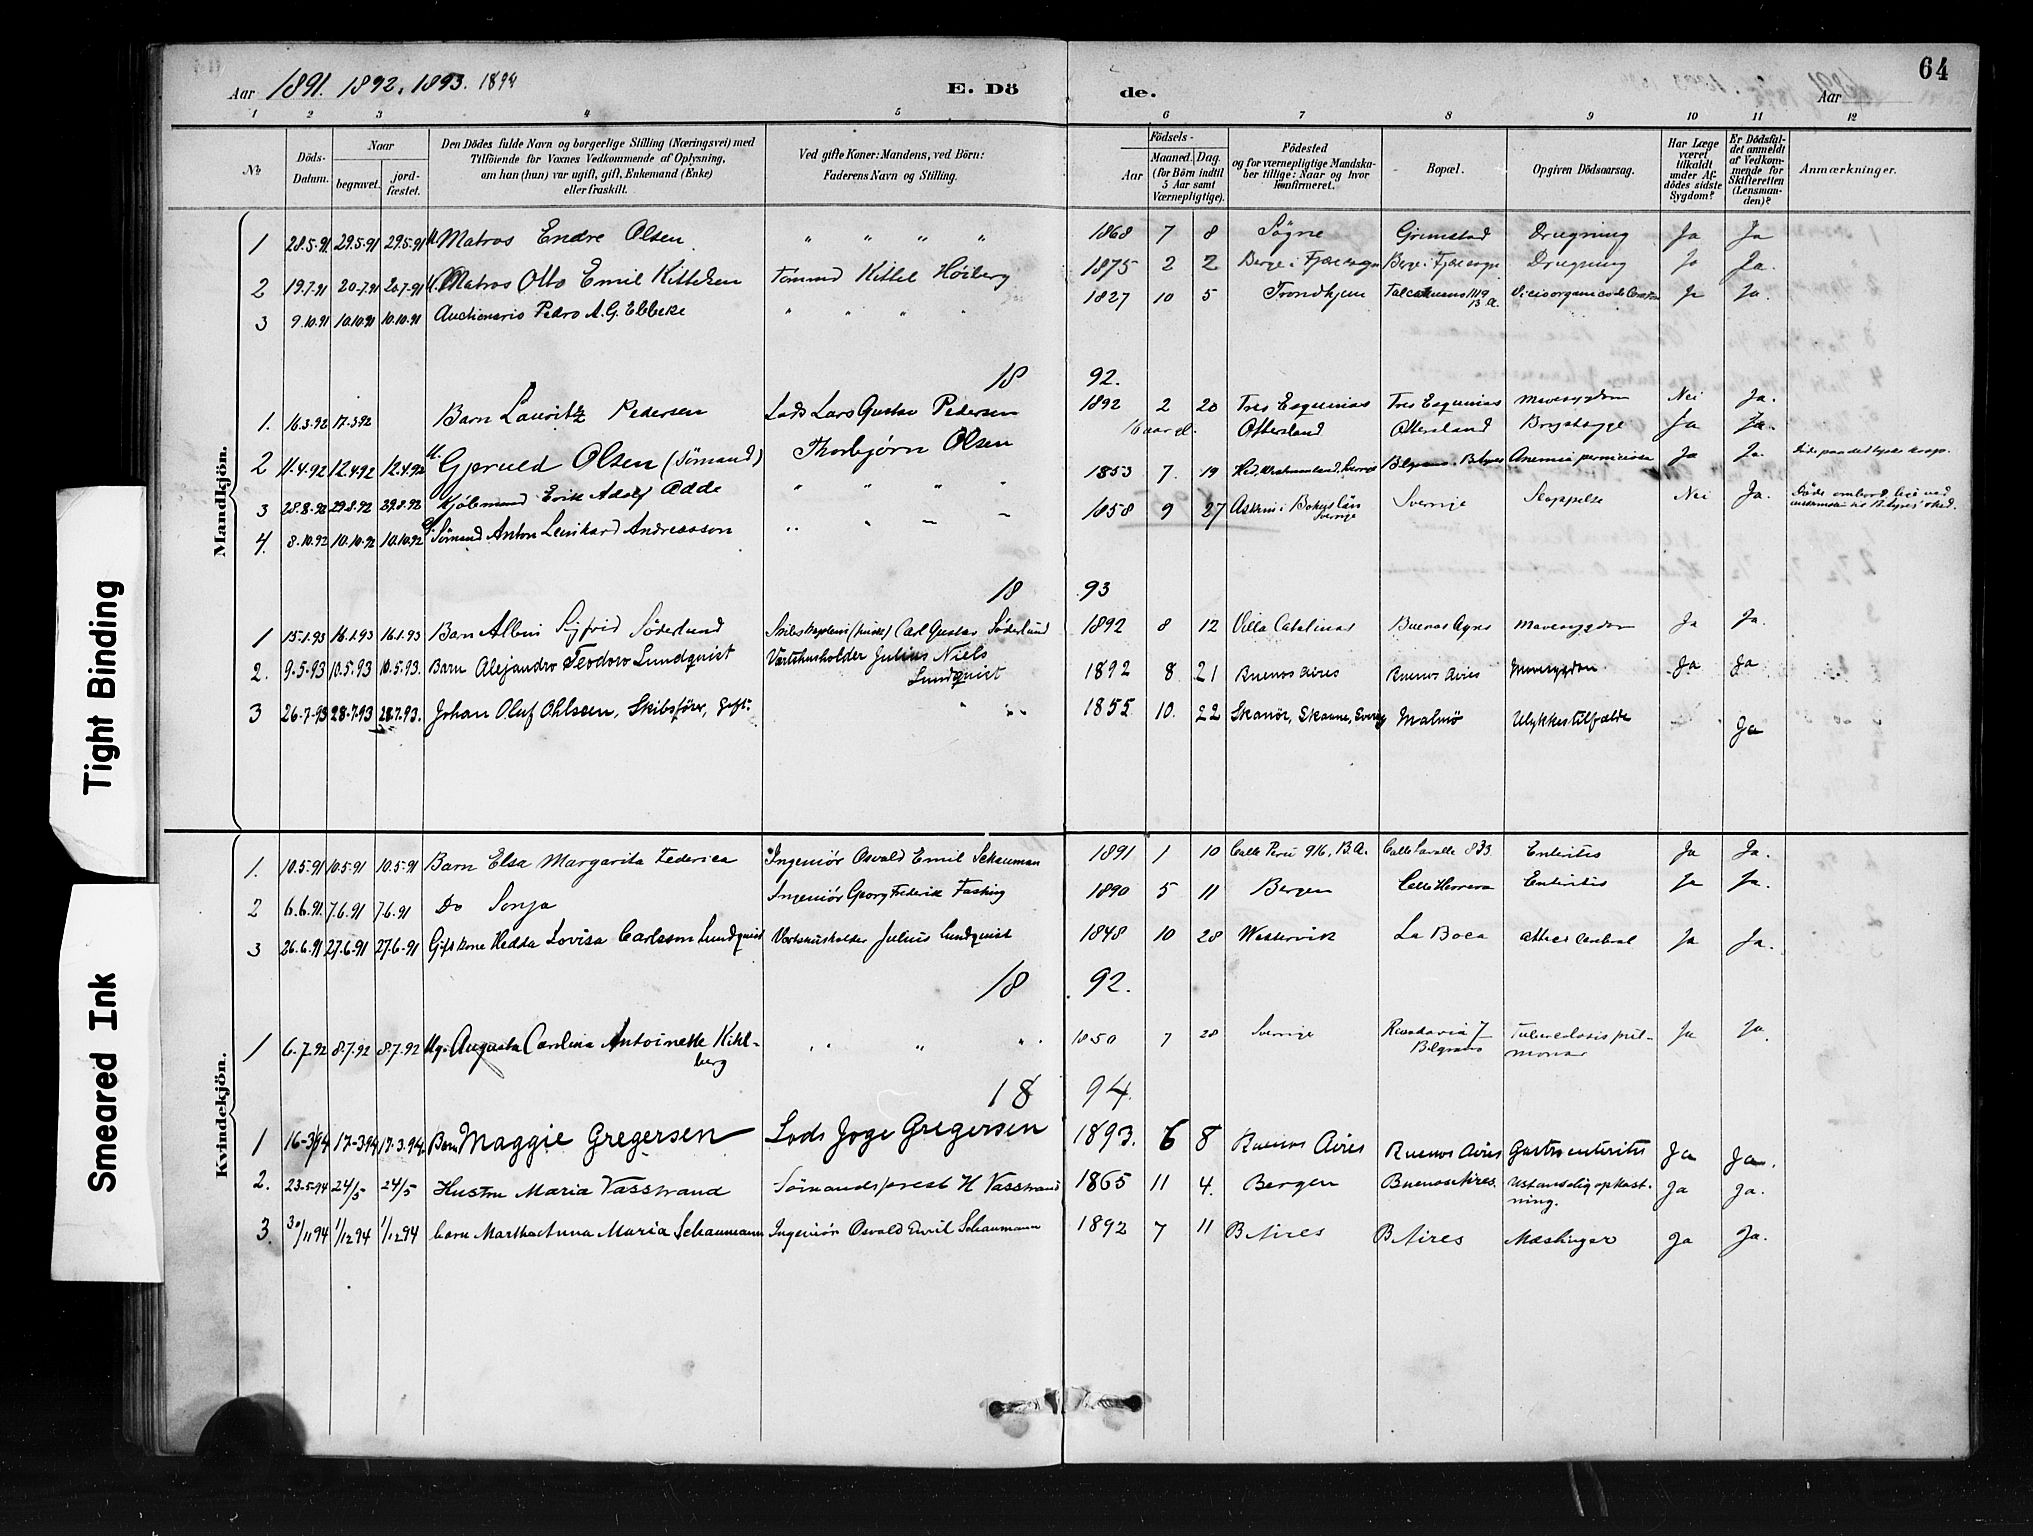 64
Aar 1891. 1892. 1893. 1894
E. Dö de.
Aar
1 2 3 4 5 6 7 8 9 10 11 12
No
Döds-Datum.
Naar
begravet. jord-fæstet.
Den Dödes fulde Navn og borgerlige Stilling (Næringsvei) med
Tilföiende for Voxnes Vedkommende af Oplysning,
om han (hun) var ugift, gift, Enkemand (Enke)
eller fraskilt.
Ved gifte Koner: Mandens, ved Börn:
Faderens Navn og Stilling.
Födsels-
Aar Maaned. Dag.
(for Börn indtil
5 Aar samt
Værnepligtige).
Födested
og for værnepligtige Mandska-
ber tillige: Naar og hvor
konfirmeret.
Bopæl.
Opgiven Dödsaarsag.
Har Læge
været
tilkaldt
under Af-
dödes sidste
Sygdom?
Er Dödsfal-
det anmeldt
af Vedkom-
mende for
Skifteretten
(Lensman-
den)?
Anmærkninger.
Mandkjön.
1 28.5.91 29.5.91 29.5.91 U. Matros Endre Olsen " " " " 1868 7 8 Sögne Grimstad Drugning Ja Ja
2 19.7.91 20.7.91 20.7.91 U. Matros Otto Emil Kittelsen Tömmd Kittel Höiberg 1875 2 2 Berge i Fjære sogn Berge i Fjæresogn Drugning Ja Ja.
3 9.10.91 10.10.91 10.10.91 Auctionario Pedro A. G. Ebbeke " " " " 1827 10 5 Trondhjem Talcahuano Ja Ja.
18 92.
1. 16.3.92 17.3.92 Barn Lauritz Pedersen Lods Lars Gustav Pedersen 1892 2 20 Tres Esquinas Tres Esquinas Mavesygdom Nei Ja.
2 11.4.92 12.4.92 12.4.92 U. Gjeruld Olsen (Sömand) Thorbjørn Olsen 16 aar gl. Ottersland Ottersland Brystsyge Ja Ja.
3 28.8.92 29.8.92 29.8.92 Kjölemand Erik Adolf Adde " " " " 1853 7. 19 Belgrano. B. Ayres Anemia perniciosa Ja Ja.
4. 8.10.92 10.10.92 10.10.92 Sömand Anton Lenikard Andreasson 1858 9 27 Askum i Bohus län Sverrige Sverrige Nei Ja.
18 93
1 15.1.93 16.1.93 16.1.93 Barn Albin Sigfrid Söderlund Skibskaptein (finsk) Carl Gustav Söderlund 1892 8 12 Villa Catalinas Buenos Ayres Mavesygdom Ja Ja.
2. 9.5.93 10.5.93 10.5.93. Barn Alejandro Teodoro Lundquist Værtshusholder Julius Niels Lundquist 1892 8. 21 Buenos Aires Buenos Aires Mavesygdom Ja Ja
3 26.7.93 28.7.93 28.7.93. Johan Oluf Ohlsson, Skibsförer, gift. 1855 10. 22 Skanör, Skaane, Sverig Malmö Ulykkestilfælde Ja
Kvindekjön.
1. 10.5.91 10.5.91 10.5.91 Barn Elsa Margarita Federica Ingeniör Osvald Emil Schauman 1891 1 10 Calle Perú 916, B.A. Calle Lavalle 833 Enteritis Ja Ja.
2 6.6.91 7.6.91 7.6.91 Do Sonja Ingeniör Georg Frederik Fasting 1890 5 11 Bergen Calle Herrera Enteritis Ja Ja.
3 26.6.91 27.6.91 27.6.91 Gift kone Hedda Lovisa Carlsson Lundquist Vertshusholder Julius Lundquist 1848 10 28 Westervik La Boca Cerebral Ja Ja.
18 92.
1 6.7.92 8.7.92 8.7.92 Ugi. Augusta Carolina Antoinette Kihl-
berg 1850 7 28 Sverrige Rivadavia 7 Belgrano Tuberculosis pul-
monar Ja Ja.
18 94.
1 16-3/94 17-3.94 17.3.94 Barn Maggie Gregersen Lods Joge Gregersen 1893. 6 8 Buenos Aires Buenos Aires Gastroenteritis Ja Ja.
2. 23.5.94 24/5 24/5 Hustru Maria Vasstrand Sömandsprest H Vasstrand 1865 11 4. Bergen Buenos Aires. Ustandselig opkast-
ning. Ja Ja.
3. 30/11 94 1/12 94 1/12 94 barn Martha Anna Maria Schaumann Ingeniör Osvald Emil Schaumann 1892 7 11 B Aires B Aires Mæslinger Ja Ja.
Tight Binding
Smeared Ink